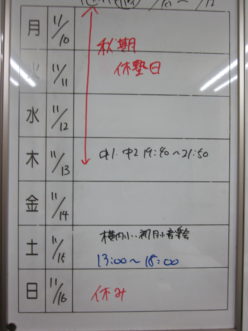 月 11/10
秋期
休塾日
火 11/11
水 11/12
木 11/13 中1 中2 19:40~21:50
金 11/14
土 11/15
13:00~18:00
日 11/16 休み